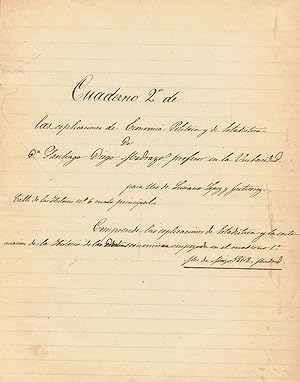 Cuaderno 2º de
las esplicaciones de Economia Politica y de Estadistica
de
Dn Santiago Diego Madrazo, profesor en la Universidad
para Uso de Luciano Lopez y Gutierrez
Calle de las Hileras nº 6 cuarto principal
Comprende las esplicaciones de Estadistica y la conti-
nuacion de la Historia de la economica empezada en el cuaderno 1º
Mes de Mayo 1848. Madrid